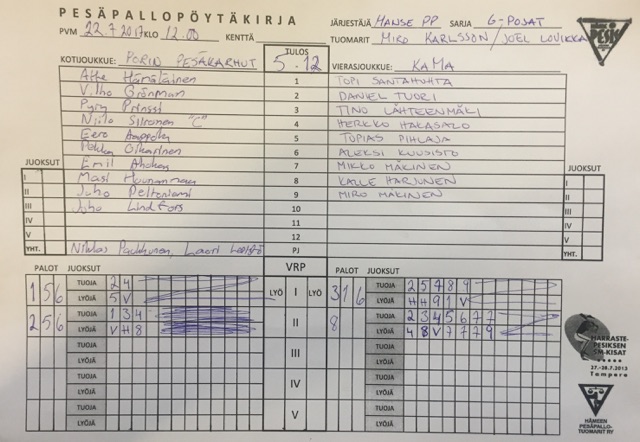 PESÄPALLOPÖYTÄKIRJA
JÄRJESTÄJÄ MANSE PP SARJA G-POJAT
PVM 22.7.2017 KLO 12.00 KENTTÄ
TUOMARIT MIRO KARLSSON / JOEL LOVIKKA
KOTIJOUKKUE: PORIN PESÄKARHUT TULOS 5-12 VIERASJOUKKUE: KAMA
Atte Hämäläinen 1 TOPI SANTAHUHTA
Vilho Grönman 2 DANIEL TUORI
Pyry Prinssi 3 TINO LÄHTEENMÄKI
Niilo Siltonen "C" 4 HERKKO HAKASALO
Eere 5 TOPIAS PIHLAJA
Pekka Oikarinen 6 ALEKSI KUUSISTO
JUOKSUT Emil Ahokas 7 MIKKO MÄKINEN JUOKSUT
I Masi 8 KALLE HARJUNEN I
II Juho Peltoniemi 9 MIRO MÄKINEN II
III Juho Lindfors 10 III
IV 11 IV
V 12 V
YHT. Niklas Paukkunen, Lauri PJ YHT.
PALOT JUOKSUT VRP PALOT JUOKSUT
TUOJA 2 4 TUOJA 2 5 4 8 9
1 5 6 LYÖJÄ 5 V LYÖ I LYÖ 3 1 6 LYÖJÄ H H 9 1 V
TUOJA 1 3 4 TUOJA 2 3 4 5 6 7 7
2 5 6 LYÖJÄ V H 8 II 8 LYÖJÄ 4 8 V 7 7 7 9
TUOJA TUOJA
LYÖJÄ III LYÖJÄ
TUOJA TUOJA
LYÖJÄ IV LYÖJÄ
TUOJA TUOJA
LYÖJÄ V LYÖJÄ
HARRASTE-
PESIKSEN
SM-KISAT
27.-28.7.2013
Tampere
HÄMEEN
PESÄPALLO-
TUOMARIT RY